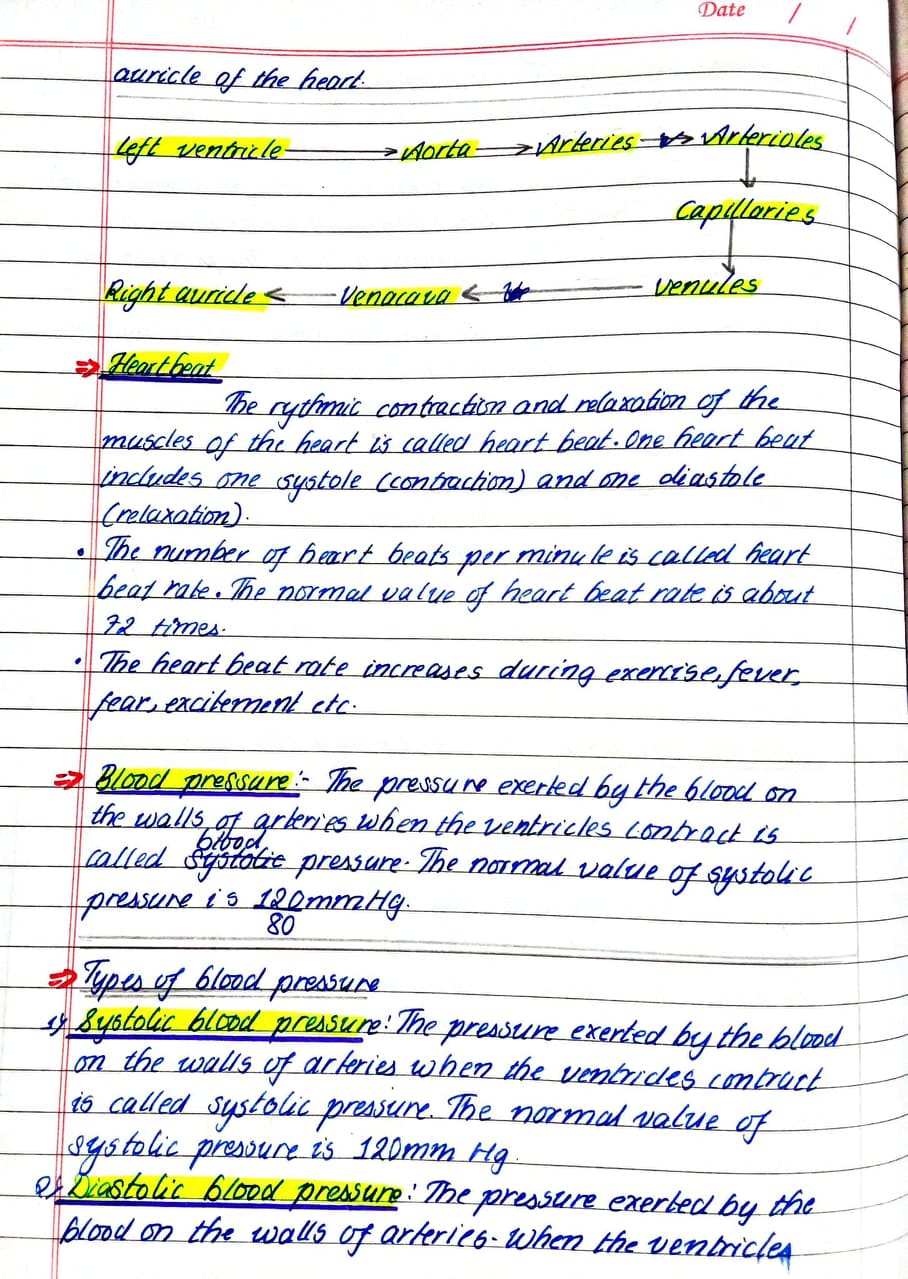 Date / /
auricle of the heart.
Left ventricle → Aorta → Arteries → Arterioles
Capillaries
Right auricle ← Venacava ← venules
⇒ Heartbeat
The rythmic contraction and relaxation of the
muscles of the heart is called heart beat. One heart beat
includes one systole (contraction) and one diastole
(relaxation).
• The number of heart beats per minute is called heart
beat rate. The normal value of heart beat rate is about
72 times.
• The heart beat rate increases during exercise, fever,
fear, excitement etc.
⇒ Blood pressure:- The pressure exerted by the blood on
the walls of arteries when the ventricles contract is
blood
called systolic pressure. The normal value of systolic
pressure is 120mmHg.
80
⇒ Types of blood pressure
1) Systolic blood pressure: The pressure exerted by the blood
on the walls of arteries when the ventricles contract
is called systolic pressure. The normal value of
systolic pressure is 120mm Hg.
2) Diastolic blood pressure: The pressure exerted by the
blood on the walls of arteries. When the ventricles